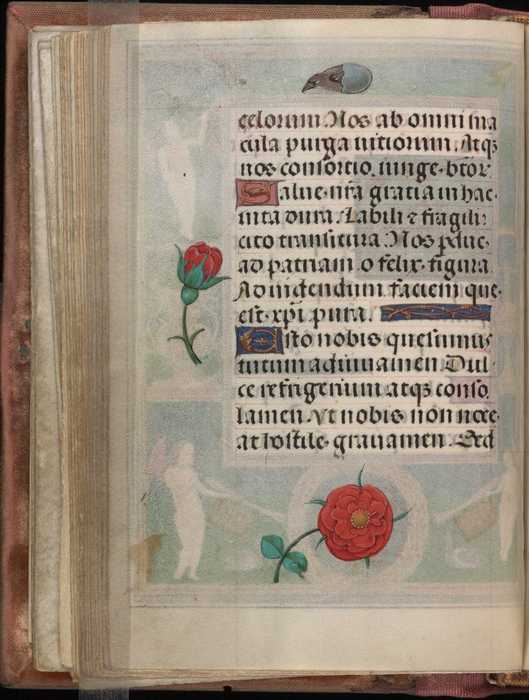 celorum Nos ab omni ma
cula purga vitiorum Atq̃
nos consortio iunge btõr
Salue nr̃a gratia in hac
vita dura Labili ⁊ fragili
cito transitura Nos pduc
ad patriam o felix figura
Ad videndum faciem que
est xp̃i pura
Esto nobis quesumus
tutum adiuuamen Dul
ce refrigerium atq̃ conso
lamen Vt nobis non noce
at hostile grauamen Sed